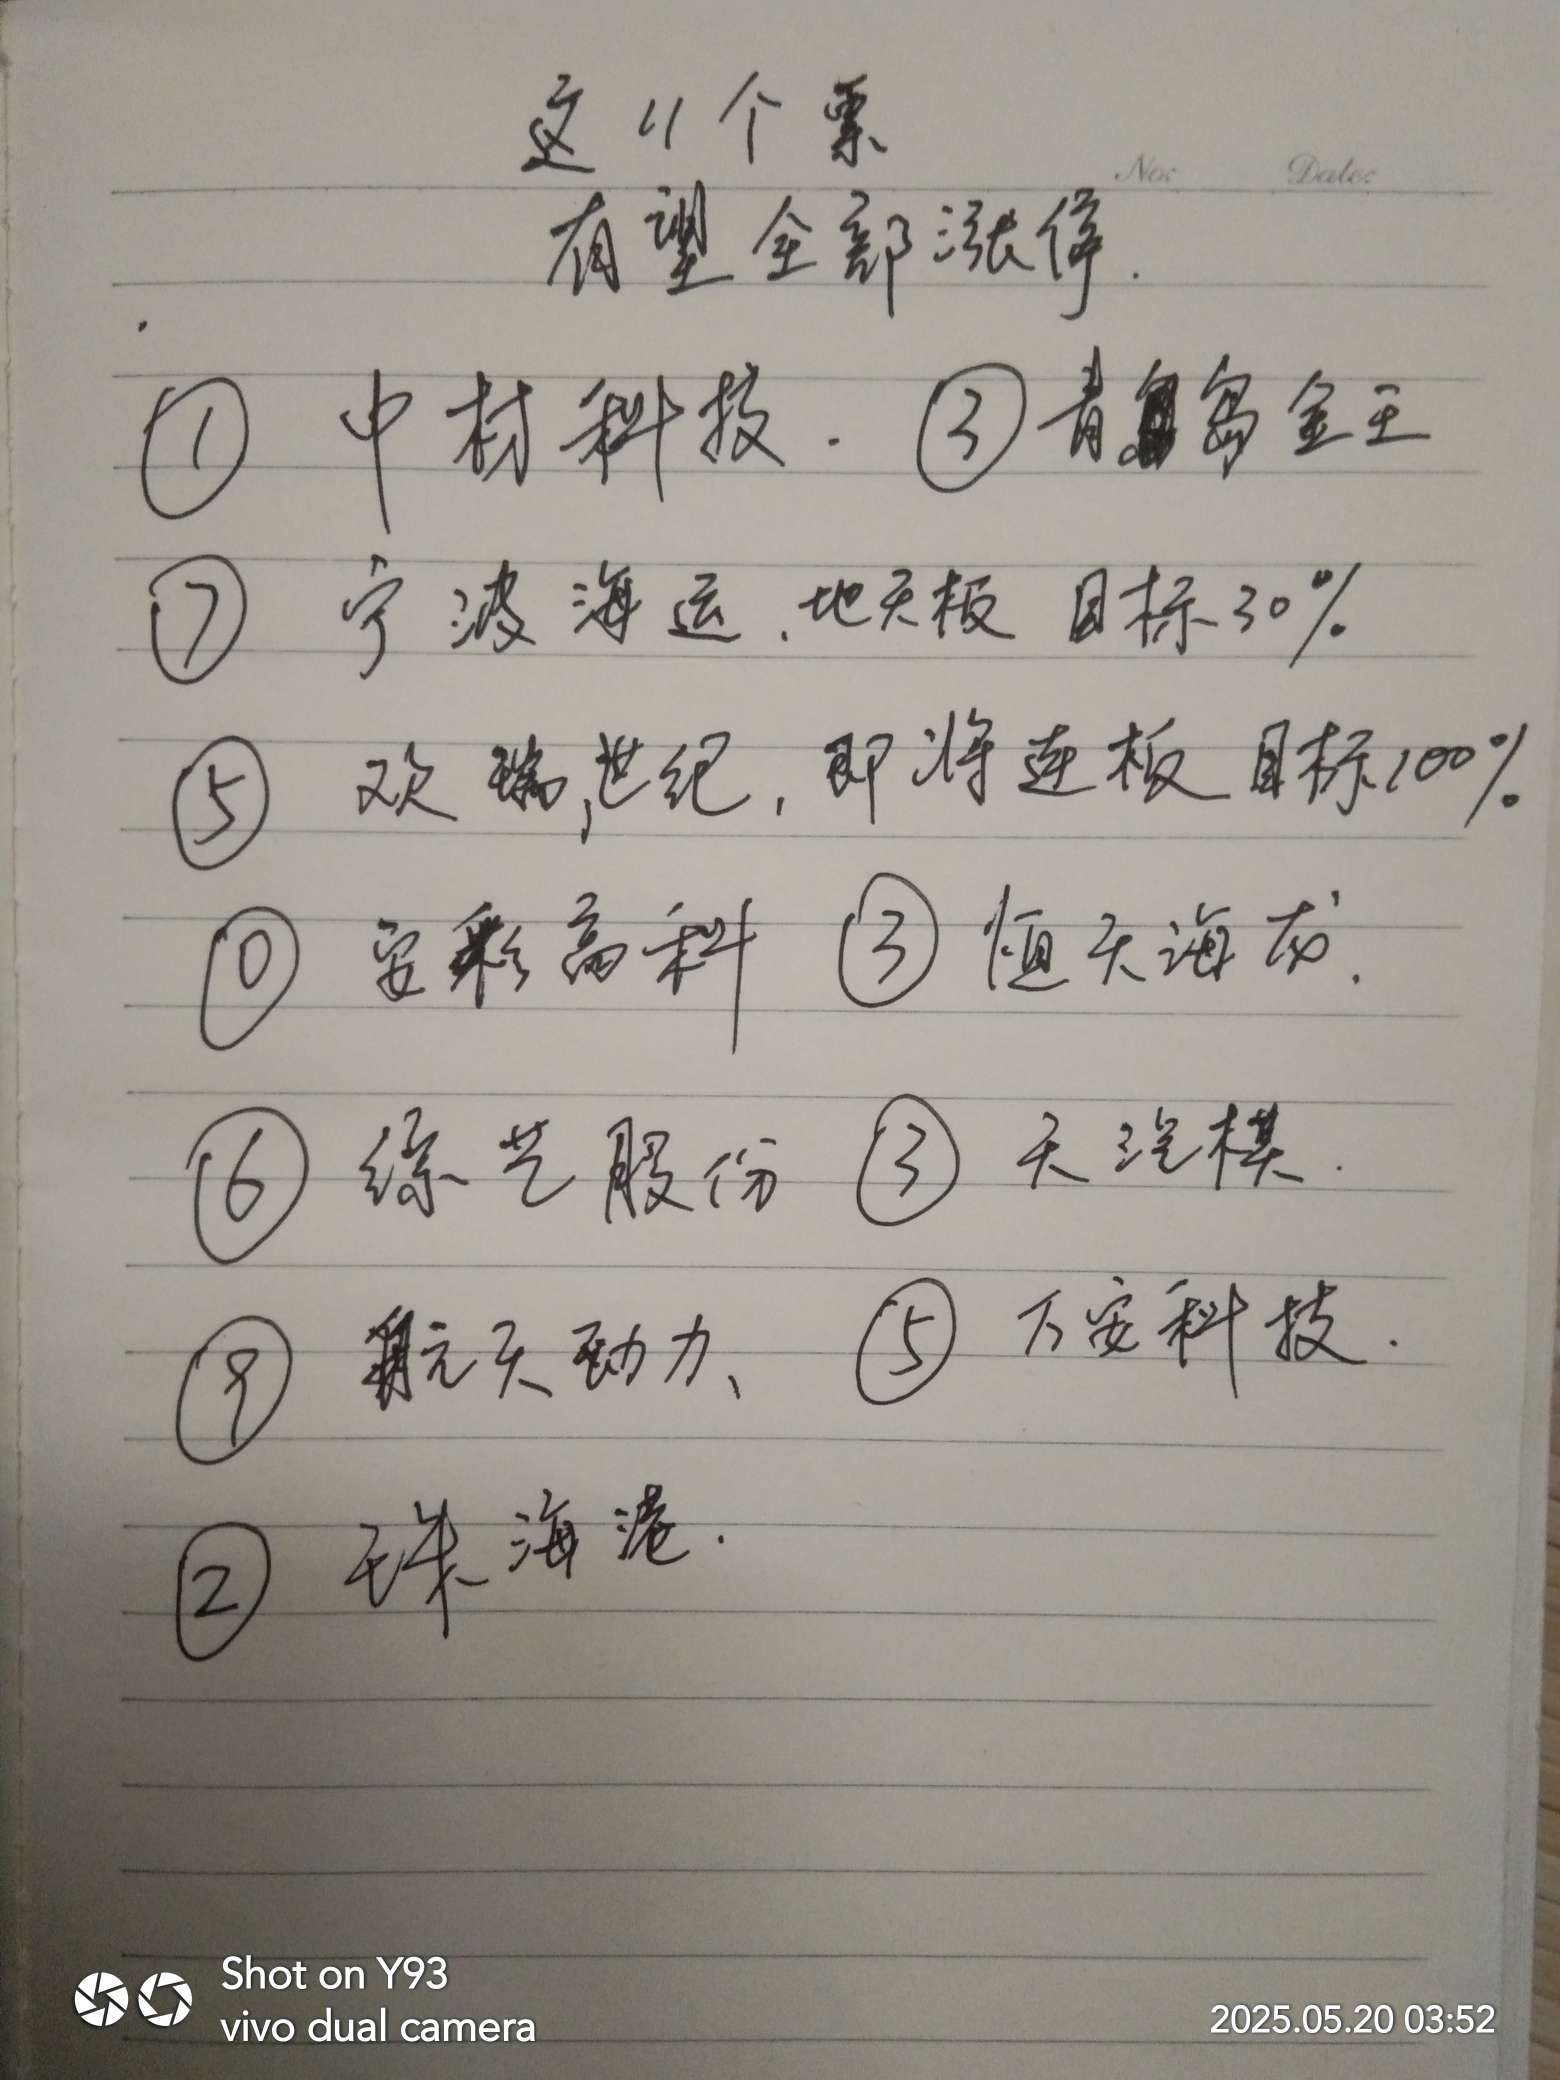 这11个票
No: Date:
有望全部涨停.
① 中材科技. ③ 青岛金王
⑦ 宁波海运、地天板 目标30%
⑤ 欢瑞世纪, 即将连板 目标100%
⓪ 安彩高科 ③ 恒天海龙.
⑥ 综艺股份 ③ 天汽模.
⑨ 航天动力、 ⑤ 万安科技.
② 珠海港.
Shot on Y93
vivo dual camera
2025.05.20 03:52